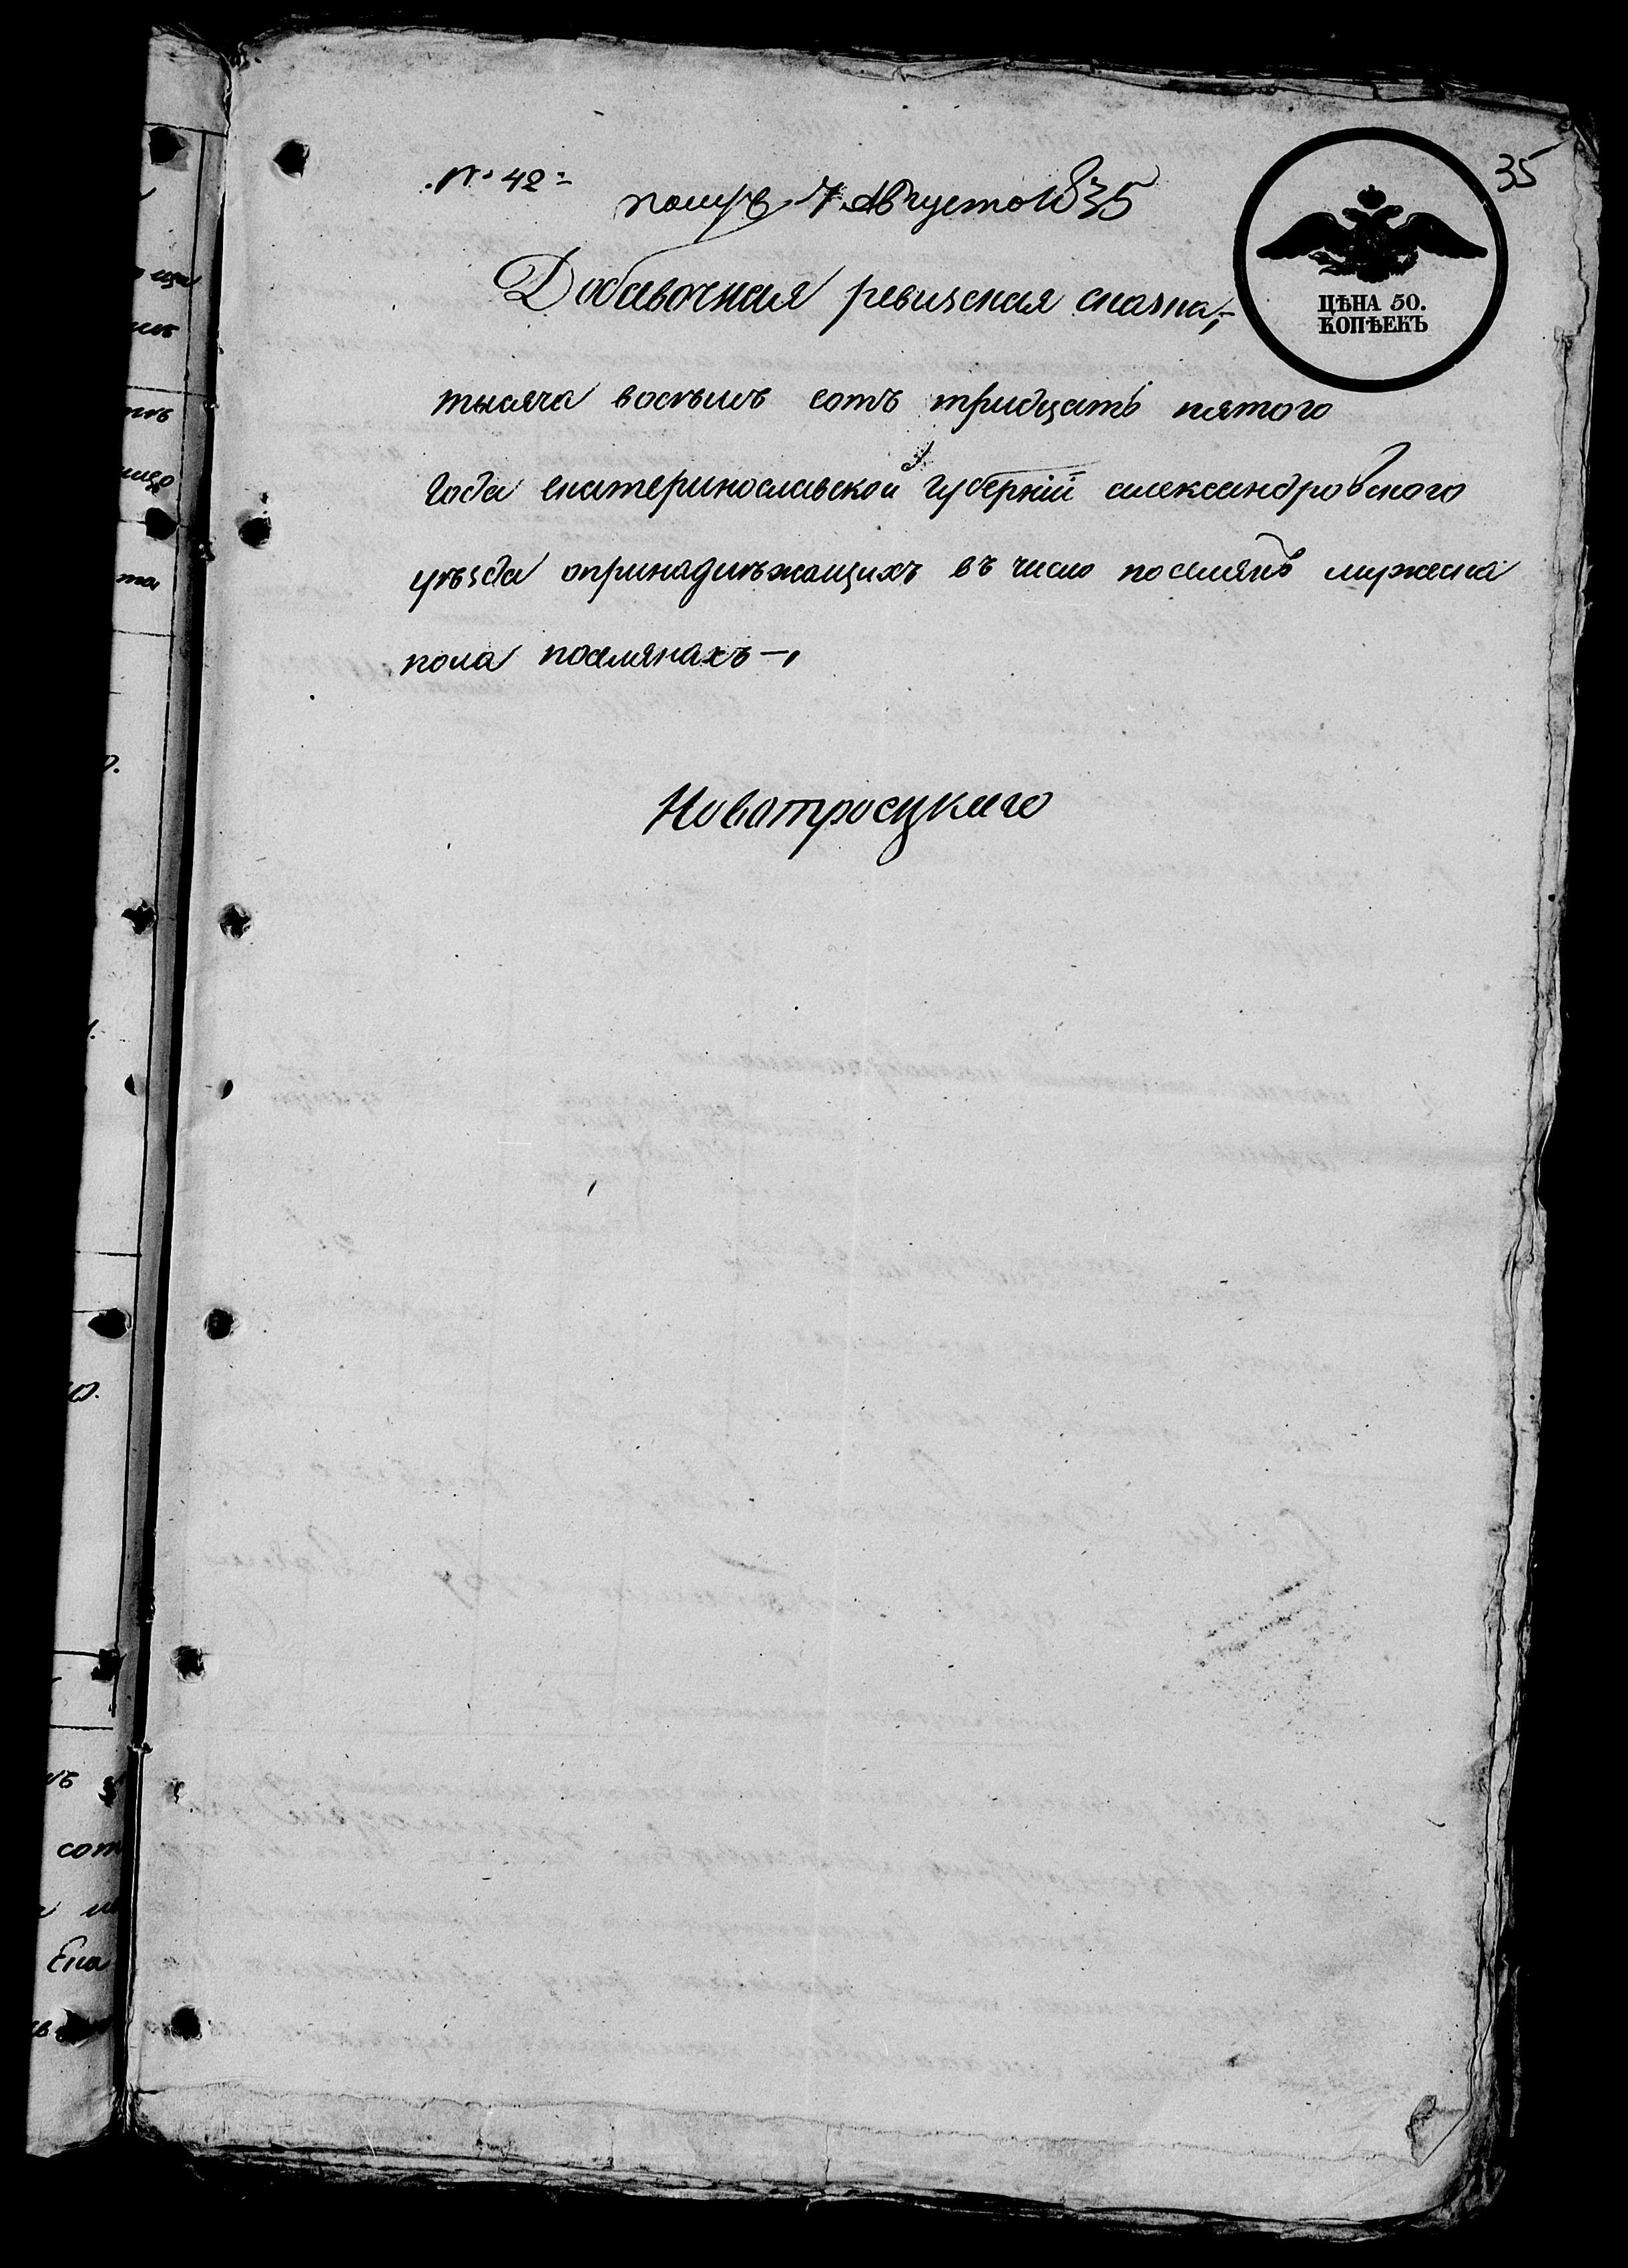 35
№ 42
получ 7 Августа 1835
Добавочная ревизская сказка,
ЦѢНА 50.
КОПѢЕКЪ
тысяча восѣмъ сотъ тридцать пятого
Года екатеринославской губерніи александровского
уѣзда опринадлѣжащихъ въ число поселянъ мужеска
пола поселянахъ
Новотроецкаго